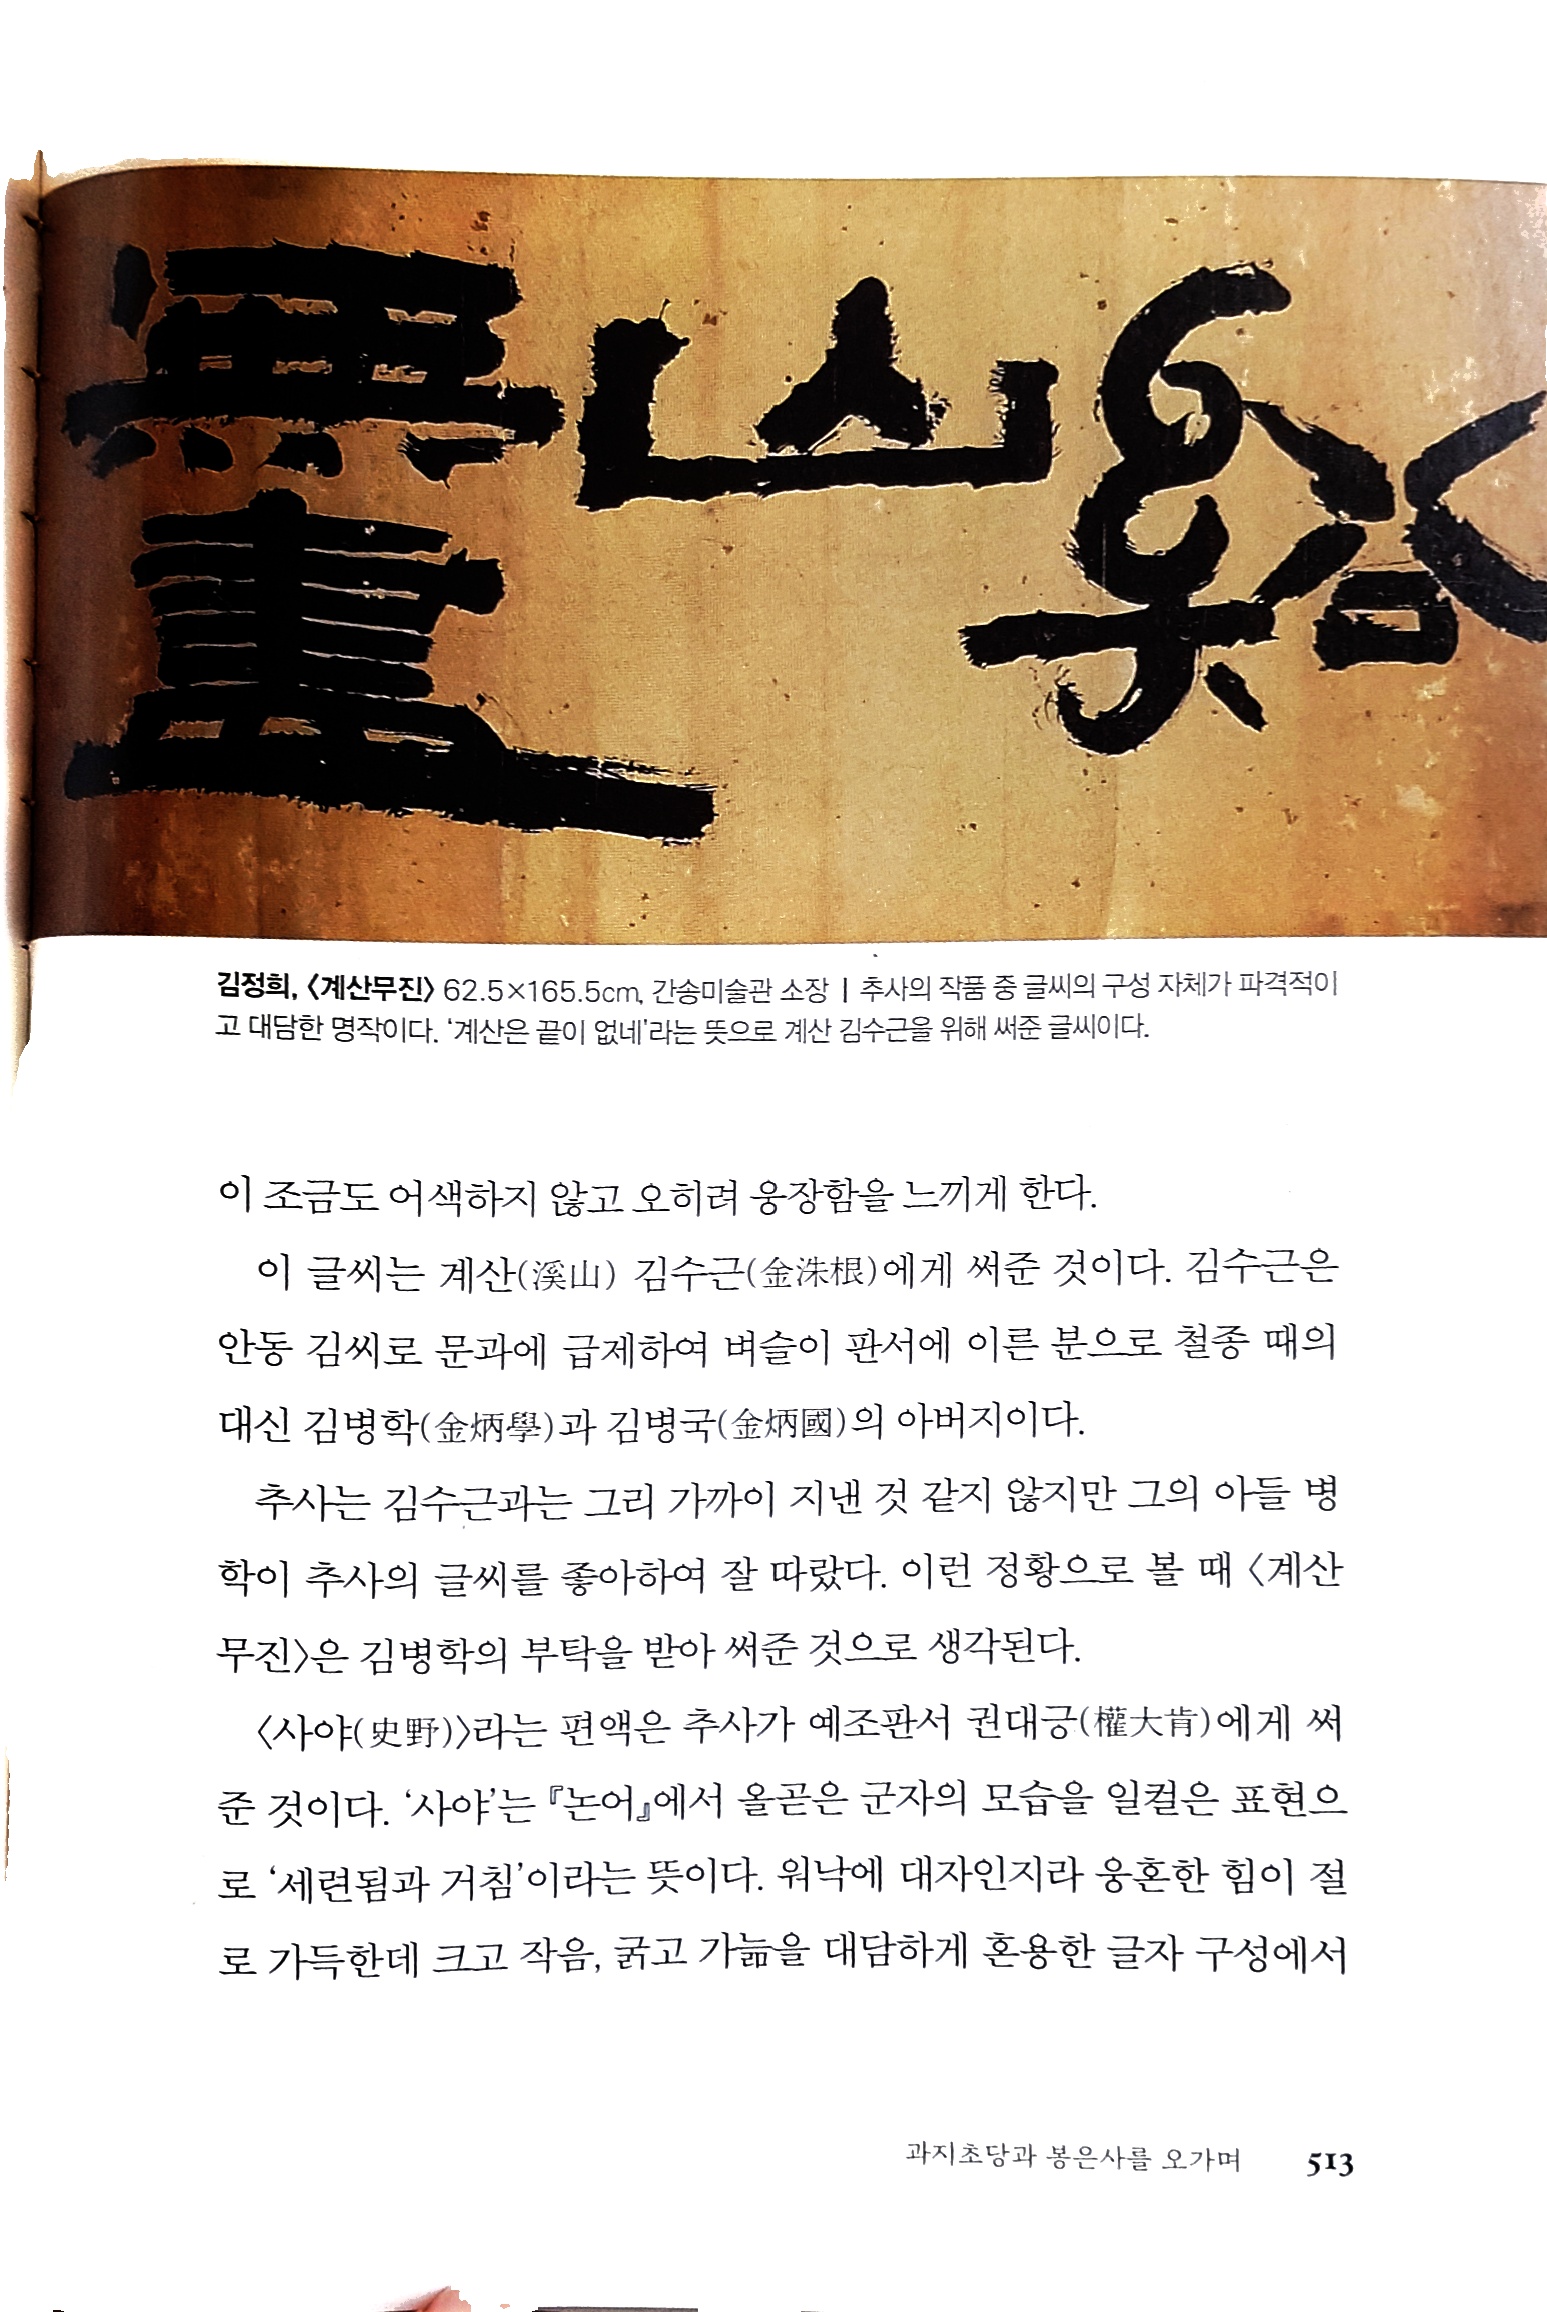 谿山無盡
김정희, 〈계산무진〉 62.5×165.5cm, 간송미술관 소장 | 추사의 작품 중 글씨의 구성 자체가 파격적이
고 대담한 명작이다. ‘계산은 끝이 없네’라는 뜻으로 계산 김수근을 위해 써준 글씨이다.
이 조금도 어색하지 않고 오히려 웅장함을 느끼게 한다.
이 글씨는 계산(溪山) 김수근(金洙根)에게 써준 것이다. 김수근은
안동 김씨로 문과에 급제하여 벼슬이 판서에 이른 분으로 철종 때의
대신 김병학(金炳學)과 김병국(金炳國)의 아버지이다.
추사는 김수근과는 그리 가까이 지낸 것 같지 않지만 그의 아들 병
학이 추사의 글씨를 좋아하여 잘 따랐다. 이런 정황으로 볼 때 〈계산
무진〉은 김병학의 부탁을 받아 써준 것으로 생각된다.
〈사야(史野)〉라는 편액은 추사가 예조판서 권대긍(權大肯)에게 써
준 것이다. ‘사야’는 『논어』에서 올곧은 군자의 모습을 일컬은 표현으
로 ‘세련됨과 거침’이라는 뜻이다. 워낙에 대자인지라 웅혼한 힘이 절
로 가득한데 크고 작음, 굵고 가늚을 대담하게 혼용한 글자 구성에서
과지초당과 봉은사를 오가며 513